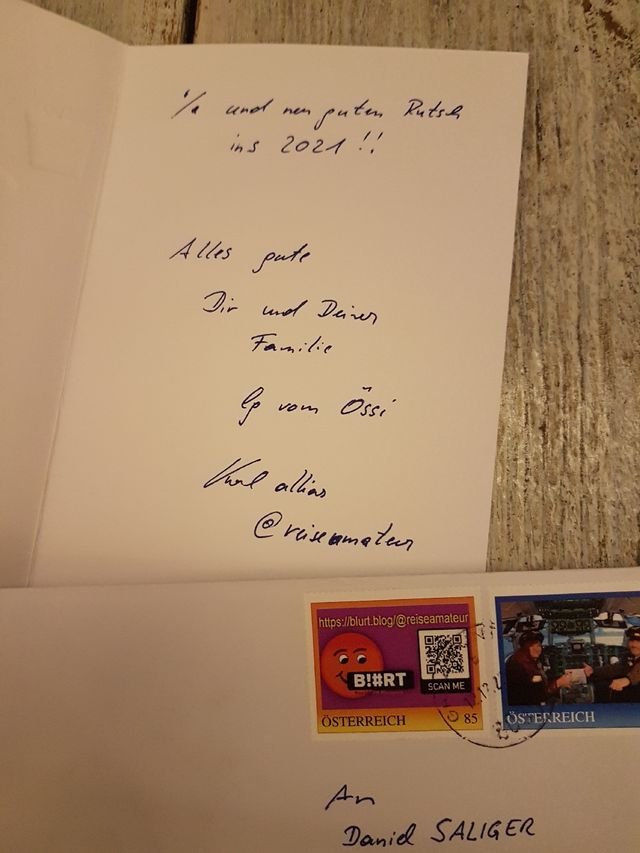 und nen guten Rutsch
ins 2021!!
Alles gute
Dir und Deiner
Familie
lg vom Össi
Karl allias
@reiseamateur
https://blurt.blog/@reiseamateur
B!#RT
SCAN ME
ÖSTERREICH 85
ÖSTERREICH
An
Daniel SALIGER